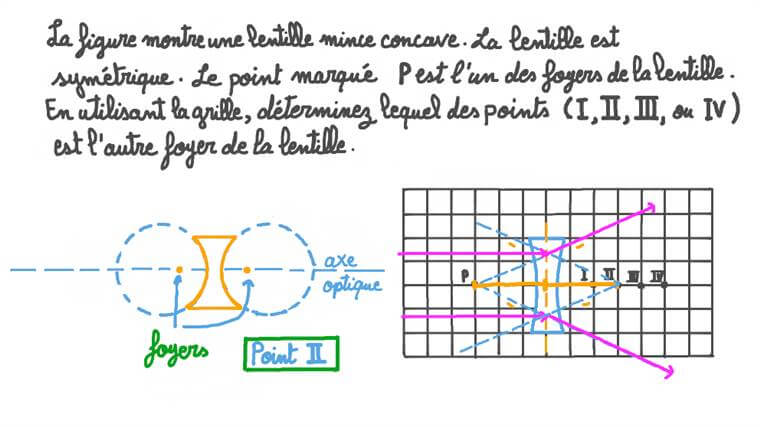 La figure montre une lentille mince concave. La lentille est
symétrique. Le point marqué P est l'un des foyers de la lentille.
En utilisant la grille, déterminez lequel des points (I, II, III, ou IV)
est l'autre foyer de la lentille.
axe
optique
foyers
Point II
P I II III IV